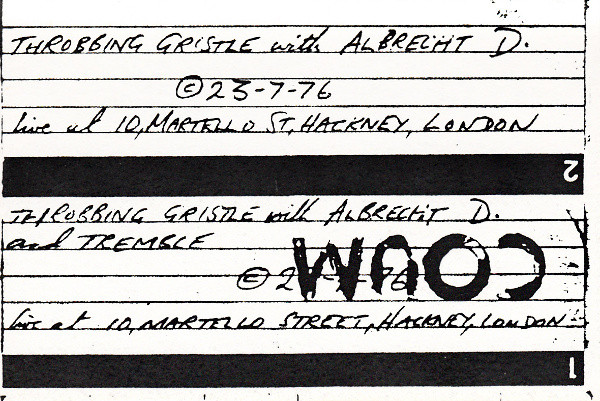 THROBBING GRISTLE with ALBRECHT D.
© 23-7-76
live at 10, MARTELLO ST, HACKNEY, LONDON
2
THROBBING GRISTLE with ALBRECHT D.
and TREMBLE
COUM
live at 10, MARTELLO STREET, HACKNEY, LONDON
1